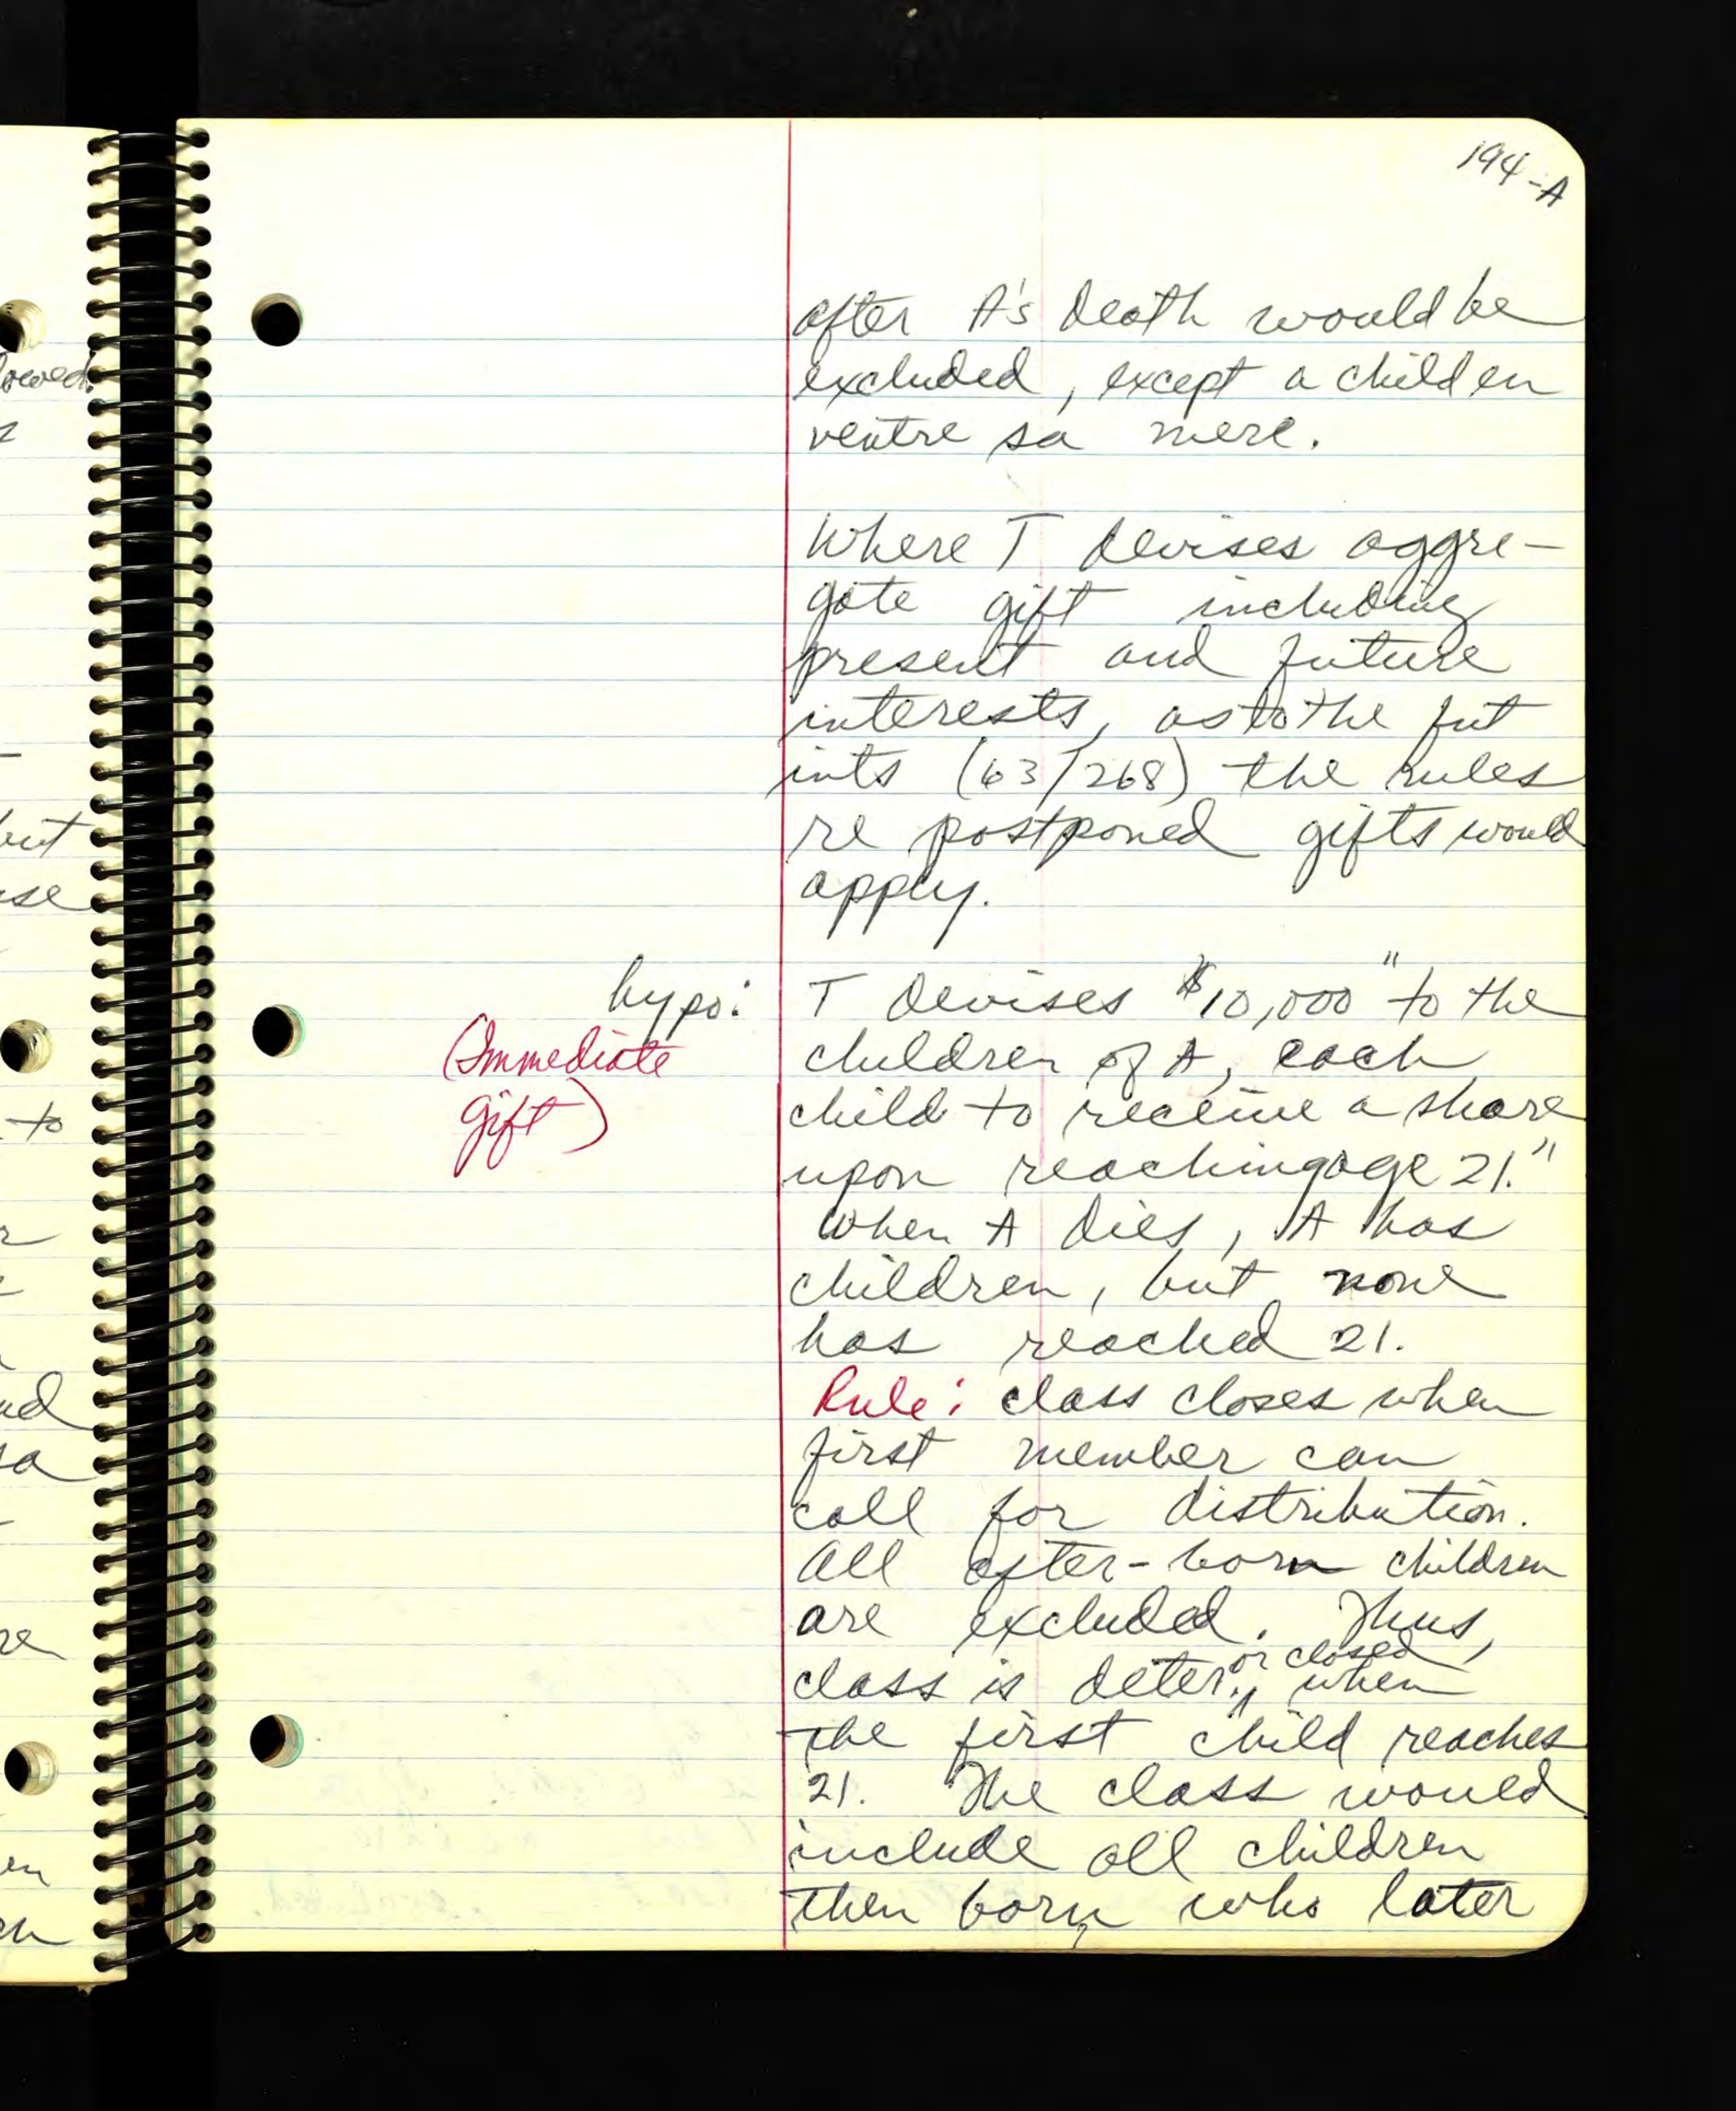 194-A
after A's death would be
excluded, except a child en
ventre sa mere.
Where T devises aggre-
gate gift including
present and future
interests, as to the fut
ints (63/268) the rules
re postponed gifts would
apply.
hypo: T devises $10,000 "to the
(Immediate children of A, each
gift) child to receive a share
upon reaching age 21."
When A dies, A has
children, but none
has reached 21.
Rule: class closes when
first member can
call for distribution.
All after-born children
are excluded. Thus,
class is deter. or closed, when
the first child reaches
21. The class would
include all children
then born who later
owed.
but
use
to
ud
sa
re
en